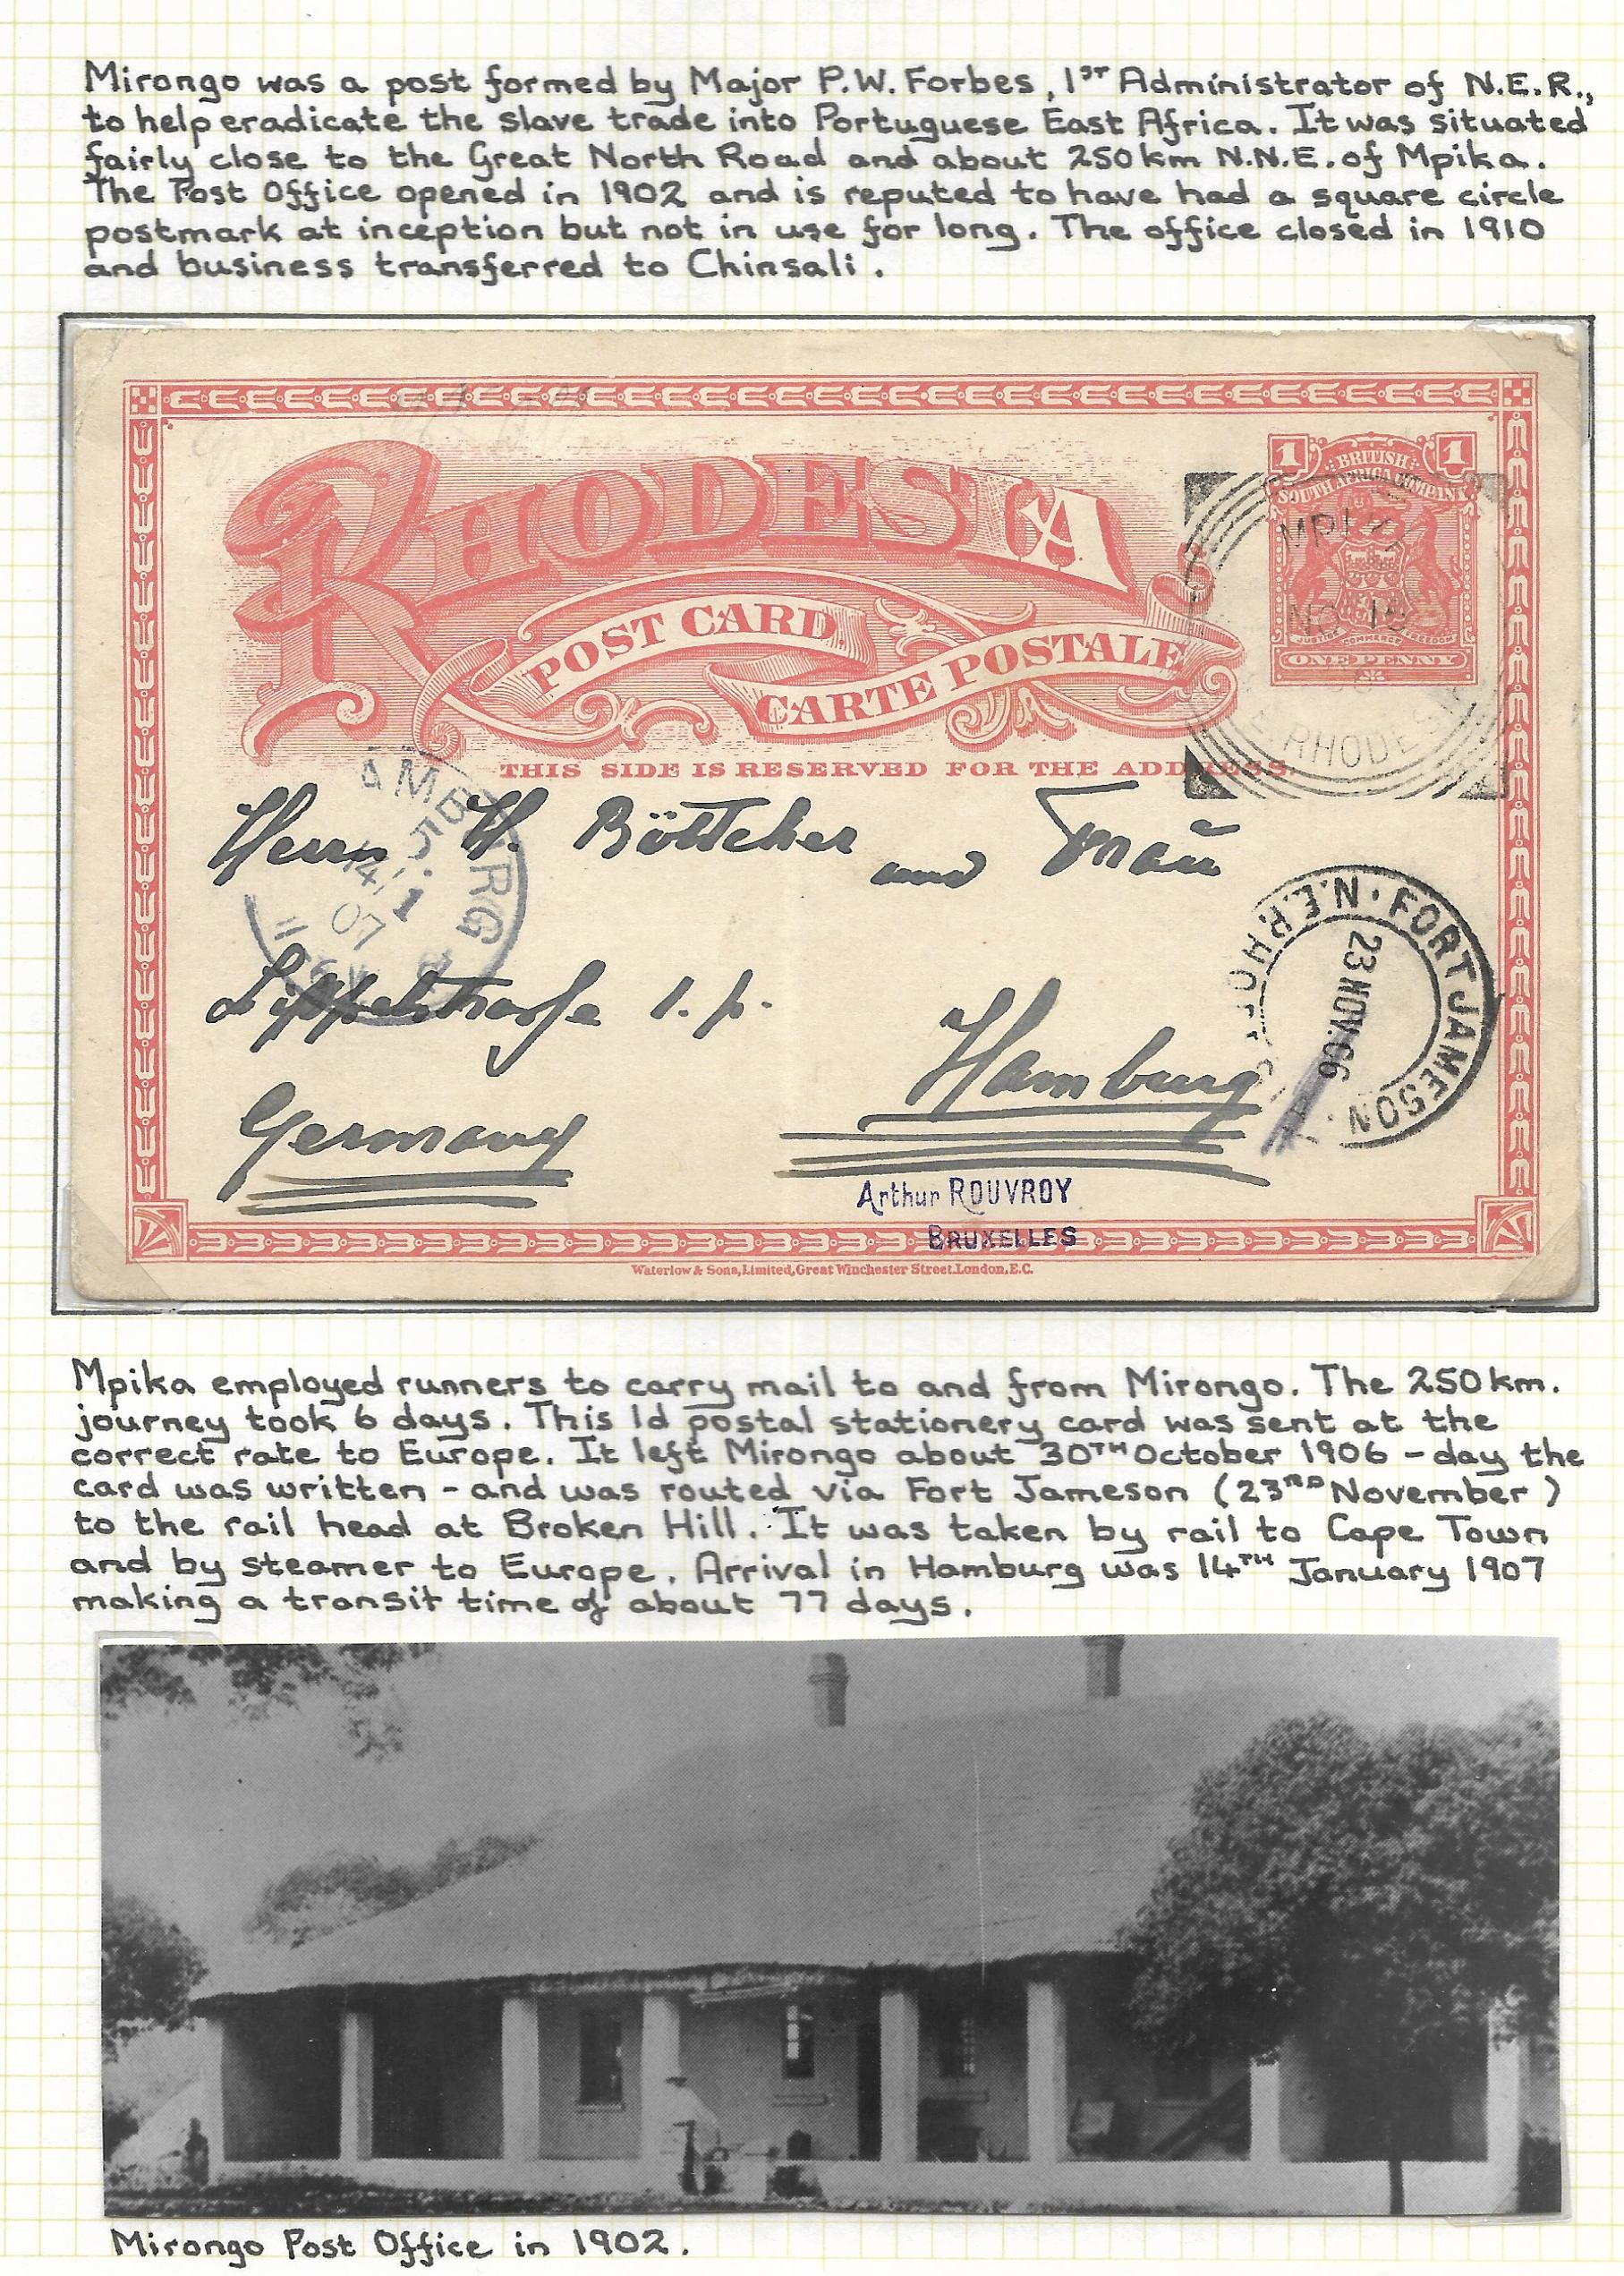 Mirongo was a post formed by Major P.W. Forbes, 1ST Administrator of N.E.R.,
to help eradicate the slave trade into Portuguese East Africa. It was situated
fairly close to the Great North Road and about 250km N.N.E. of Mpika.
The Post Office opened in 1902 and is reputed to have had a square circle
postmark at inception but not in use for long. The office closed in 1910
and business transferred to Chinsali.
1 1
BRITISH
SOUTH AFRICA COMPANY
RHODESIA
MPIKA
NO 10
JUSTICE COMMERCE FREEDOM
ONE PENNY
POST CARD.
CARTE POSTALE
E RHODES
THIS SIDE IS RESERVED FOR THE ADDRESS.
AMBURG
5.
14/1
07
Herrn H. Böttcher und Frau
N.E. RHO
FORT JAMESON
23 NOV. 06
Lippelstrasse 1. p.
Hamburg
Germany
Arthur ROUVROY
BRUXELLES
Waterlow & Sons, Limited, Great Winchester Street, London, E.C.
Mpika employed runners to carry mail to and from Mirongo. The 250km.
journey took 6 days. This 1d postal stationery card was sent at the
correct rate to Europe. It left Mirongo about 30TH October 1906 – day the
card was written – and was routed via Fort Jameson (23RD November)
to the rail head at Broken Hill. It was taken by rail to Cape Town
and by steamer to Europe. Arrival in Hamburg was 14TH January 1907
making a transit time of about 77 days.
Mirongo Post Office in 1902.